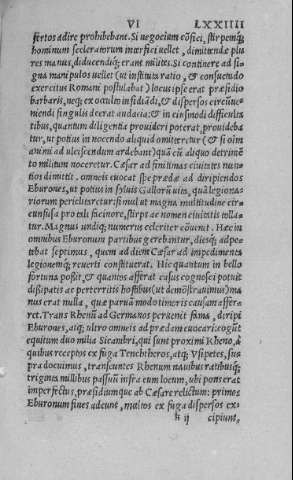 VI LXXIIII
sertos adire prohibebant. Si negocium cōfici, stirpemq;
hominum sceleratorum interfici uellet, dimittendæ plu
res manus, diducendiq; erant milites. Si continere ad si=
gna manipulos uellet (ut instituta ratio, & consuetudo
exercitus Romani postulabat) locus ipse erat præsidio
barbaris, neq; ex occulto insidiādi, & dispersos circūue=
niendi singulis deerat audacia: & in eiusmodi difficulta
tibus, quantum diligentia prouideri poterat, prouideba
tur, ut potius in nocendo aliquid omitteretur (& si oīm
animi ad ulciscendum ardebant) quā cū aliquo detrimē=
to militum noceretur. Cæsar ad finitimas ciuitates nun=
tios dimittit. omneis euocat spe prædæ ad diripiendos
Eburones, ut potius in syluis Gallorū uita, quà legiona=
riorum periclitetur: simul ut magna multitudine cir=
cunfusa pro tali facinore, stirps ac nomen ciuitatis tolla=
tur. Magnus undiq; numerus celeriter cōuenit. Hæc in
omnibus Eburonum partibus gerebantur, diesq; adpe=
tebat septimus, quem ad diem Cæsar ad impedimenta
legionemq; reuerti constituerat. Hic quantum in bello
fortuna possit, & quantos afferat casus cognosci potuit
dissipatis ac perterritis hostibus (ut demōstrauimus) ma
nus erat nulla, quæ paruā modo timoris causam affer=
ret. Trans Rhenū ad Germanos peruenit fama, diripi
Eburones, atq; ultro omneis ad prædam euocari: cogūt
equitum duo milia Sicambri, qui sunt proximi Rheno, à
quibus receptos ex fuga Tenchtheros, atq; Vsipetes, su=
pra docuimus, transeuntes Rhenum nauibus ratibusq;
triginta millibus passuū infra eum locum, ubi pons erat
imperfectus, præsidiumque ab Cæsare relictum: primos
Eburonum fines adeunt, multos ex fuga dispersos ex=
h ij cipiunt,